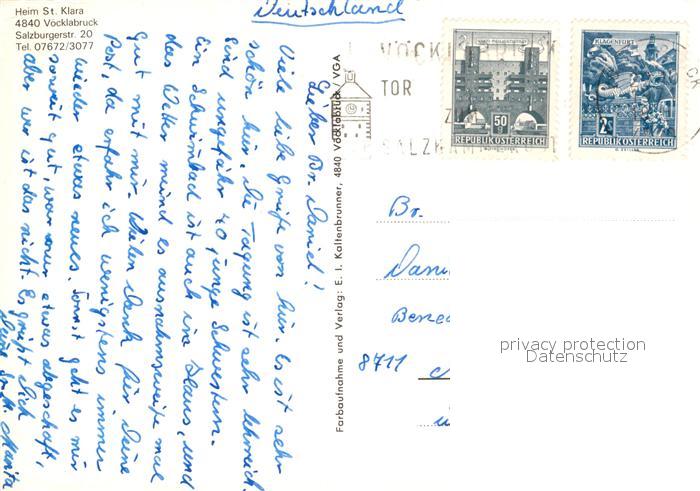 Heim St. Klara
4840 Vöcklabruck
Salzburgerstr. 20
Tel. 07672/3077
Deutschland
Lieber Br. Daniel!
Viele liebe Grüße von hier. Es ist sehr
schön hier. Die Tagung ist sehr lehrreich.
Sind ungefähr 40 junge Schwestern.
Ein Schwimmbad ist auch im Haus, und
das Wetter meint es ausnahmsweise mal
gut mit mir. Vielen Dank für Deine
Post, da erfahr ich wenigstens immer
wieder etwas neues. Sonst geht es mir
soweit gut, war nur etwas abgeschafft,
aber wer ist das nicht. Es grüßt Dich
Deine Sr. M. Marita
Farbaufnahme und Verlag: E. I. Kaltenbrunner, 4840 Vöcklabruck / VGA
VÖCKLABRUCK
TOR
ZUM
SALZKAMMERGUT
50 g
REPUBLIK ÖSTERREICH
KLAGENFURT
2 S
REPUBLIK ÖSTERREICH
Br.
Dani
Bened
8711
privacy protection
Datenschutz